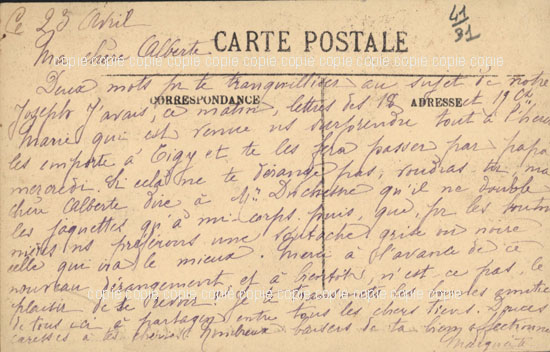 Ce 23 Avril
41
31
Ma chère Alberte
CARTE POSTALE
Deux mots pr te tranquilliser au sujet de notre
CORRESPONDANCE
ADRESSE
Joseph. J'avais, ce matin, lettres des 18 et 19 ct
Marie qui est venue ns surprendre tout à l'heure
les emporte à Tigy et te les fera passer par papa
mercredi. Si cela ne te dérange pas, voudras tu, ma
chère Alberte dire à Mr Duchesne qu'il ne double
les jaquettes qu'à mi-corps puis, que, pr les
ns préférons une soutache grise ou noire
celle qui ira le mieux. Merci à l'avance de ce
nouveau dérangement, et à bientôt, n'est-ce pas, le
plaisir de te les bonnes amitiés
de tous ici à partager entre tous les chers tiens. Douces
caresses à tes chéries. Nombreux baisers de ta bien affectionnée
Marguerite
copie copie copie copie copie copie